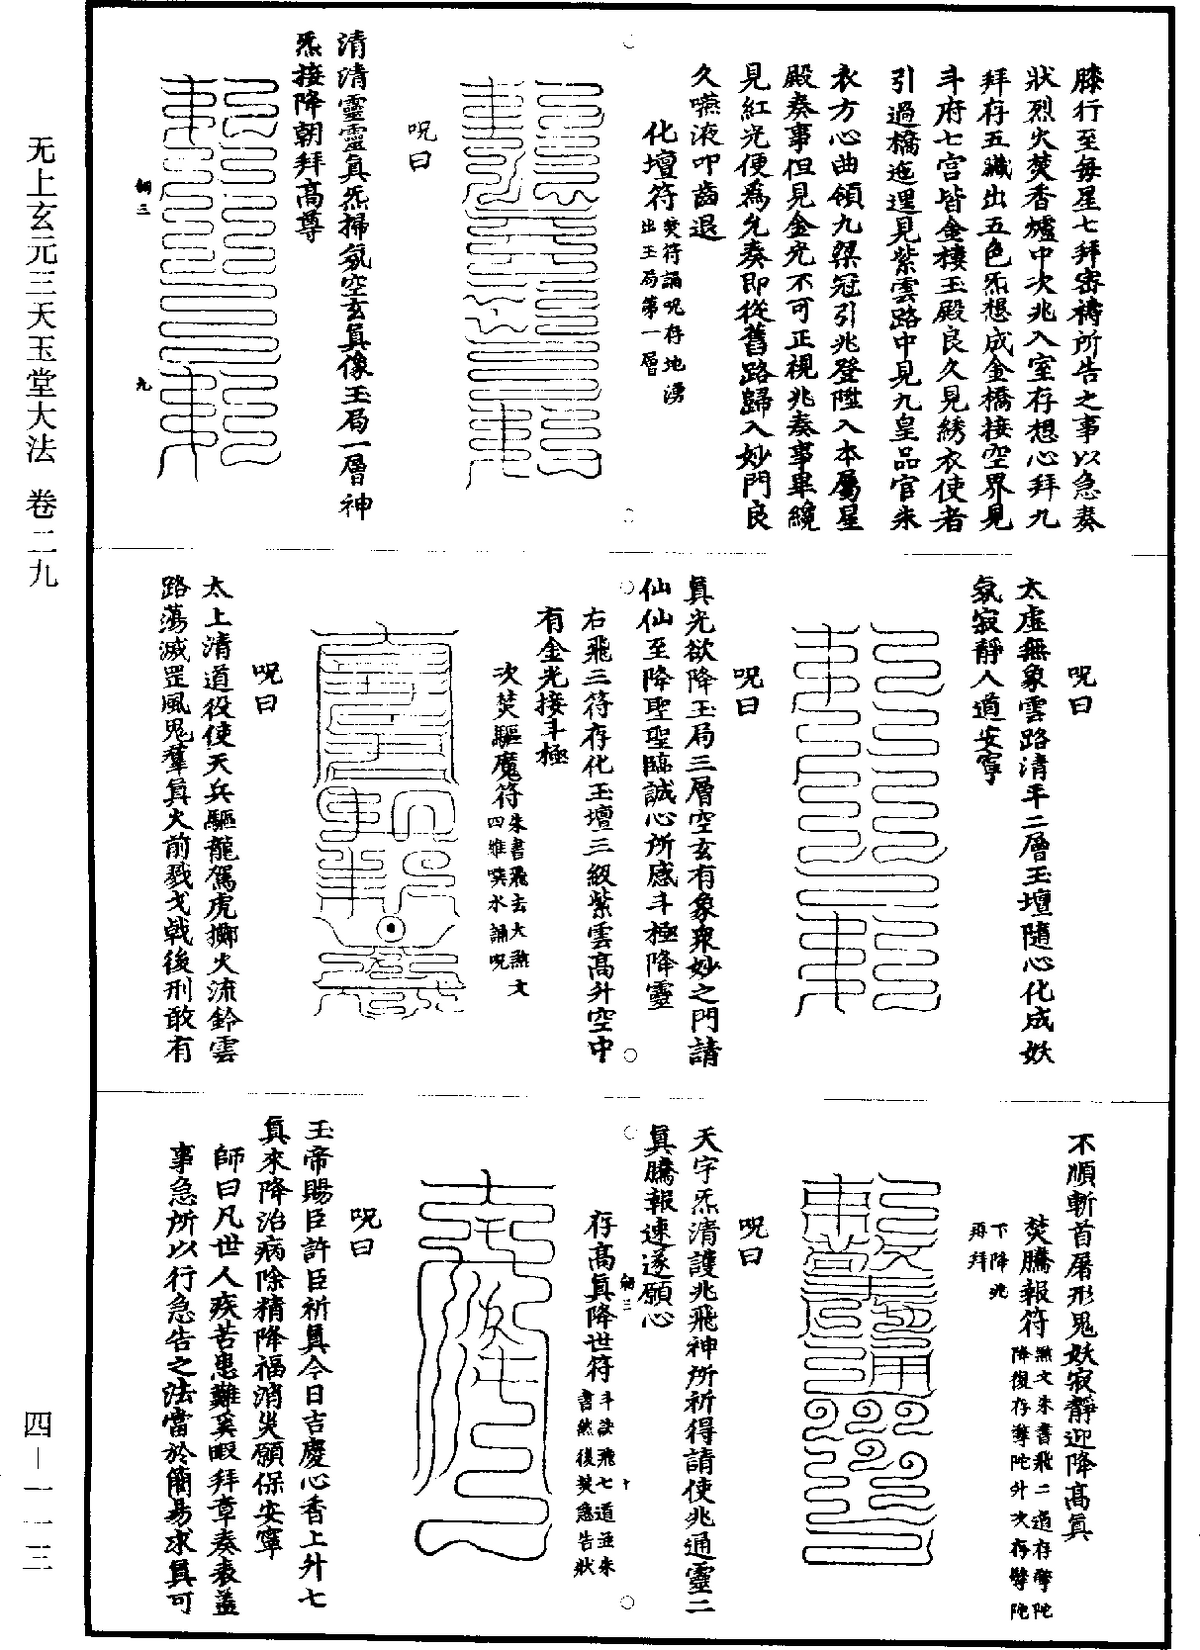 膝行至每星七拜密禱所告之事以急奏
狀烈火焚香爐中次兆入室存想心拜九
拜存五臟出五色炁想成金橋接空界見
斗府七宮皆金樓玉殿良久見綉衣使者
引過橋迤邐見紫雲路中見九皇品官朱
衣方心曲領九梁冠引兆登陞入本屬星
殿奏事但見金光不可正視兆奏事畢纔
見紅光便為允奏即從舊路歸入妙門良
久嚥液叩齒退
化壇符焚符誦呪存地湧
出玉局第一層
呪曰
清清靈靈真炁掃氛空玄真像玉局一層神
炁接降朝拜高尊
銅三
九
呪曰
太虛無象雲路清平二層玉壇隨心化成妖
氛寂靜人道安寧
呪曰
真光欲降玉局三層空玄有象衆妙之門請
仙仙至降聖聖臨誠心所感斗極降靈
右飛三符存化玉壇三級紫雲高升空中
有金光接斗極
次焚驅魔符朱書飛去大煞文
四維噀水誦呪
呪曰
太上清道役使天兵驅龍駕虎擲火流鈴雲
路蕩滅罡風鬼羣真火前戮戈戟後刑敢有
不順斬首屠形鬼妖寂靜迎降高真
焚騰報符煞文朱書飛二道存擘陀
降復存擘陀升次存擘陀
下降兆
再拜
呪曰
天宇炁清護兆飛神所祈得請使兆通靈二
真騰報速遂願心
銅三
十
存高真降世符斗訣飛七道並朱
書然後焚急告狀
呪曰
玉帝賜臣許臣祈真今日吉慶心香上升七
真來降治病除精降福消災願保安寧
師曰凡世人疾苦患難奚暇拜章奏表蓋
事急所以行急告之法當於簡易求真可
无上玄元三天玉堂大法　卷二九
四—一一三